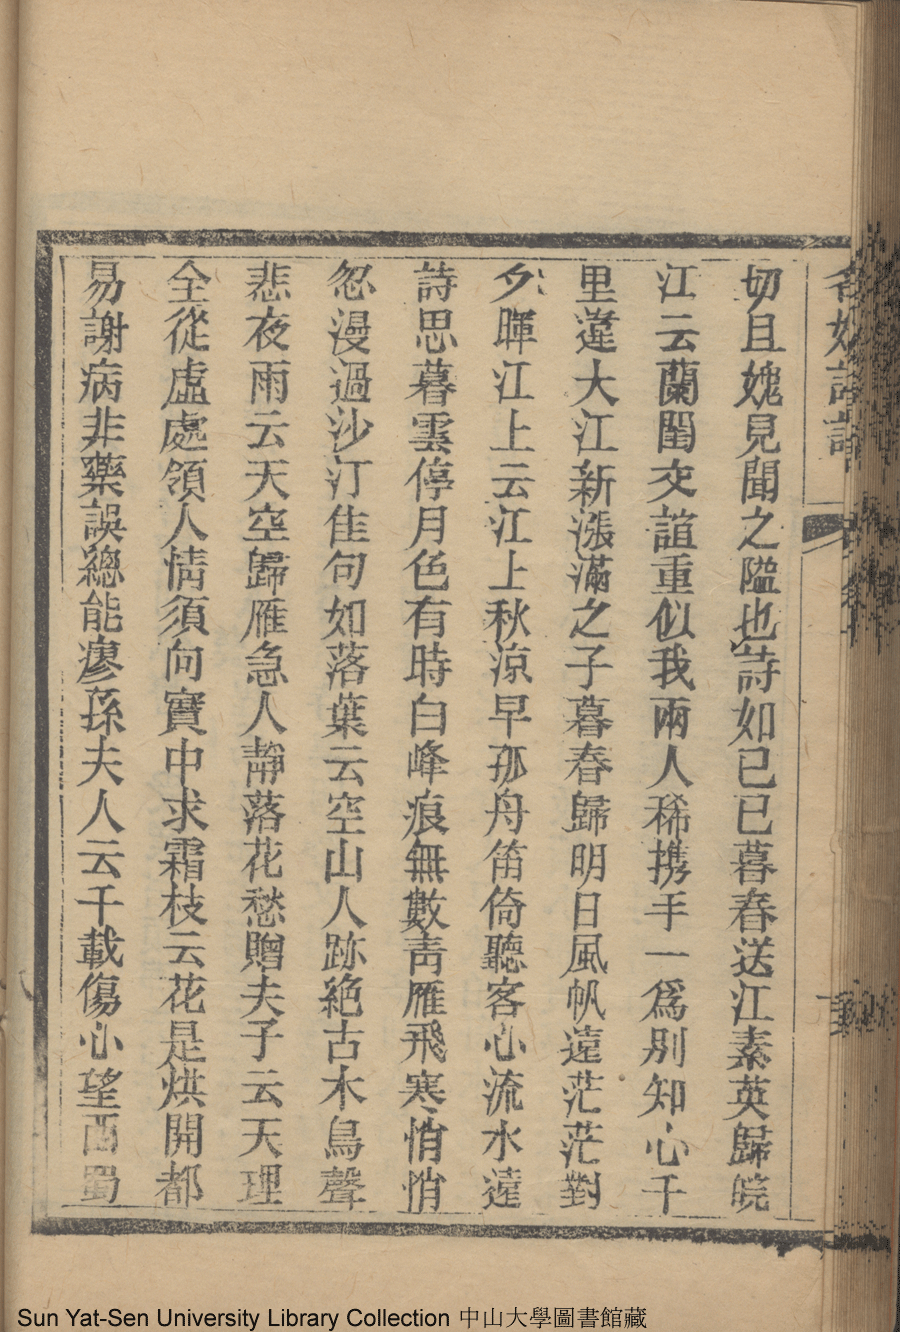 名媛詩話
切且媿見聞之隘也詩如己巳暮春送江素英歸皖
江云蘭閨交誼重似我兩人稀携手一爲別知心千
里違大江新漲滿之子暮春歸明日風帆遠茫茫對
夕暉江上云江上秋涼早孤舟笛倚聽客心流水遠
詩思暮雲停月色有時白峰痕無數青雁飛寒悄悄
忽漫過沙汀佳句如落葉云空山人跡絕古木鳥聲
悲夜雨云天空歸雁急人靜落花愁贈夫子云天理
全從虛處領人情須向實中求霜枝云花是烘開都
易謝病非藥誤總能瘳孫夫人云千載傷心望西蜀
Sun Yat-Sen University Library Collection 中山大學圖書館藏